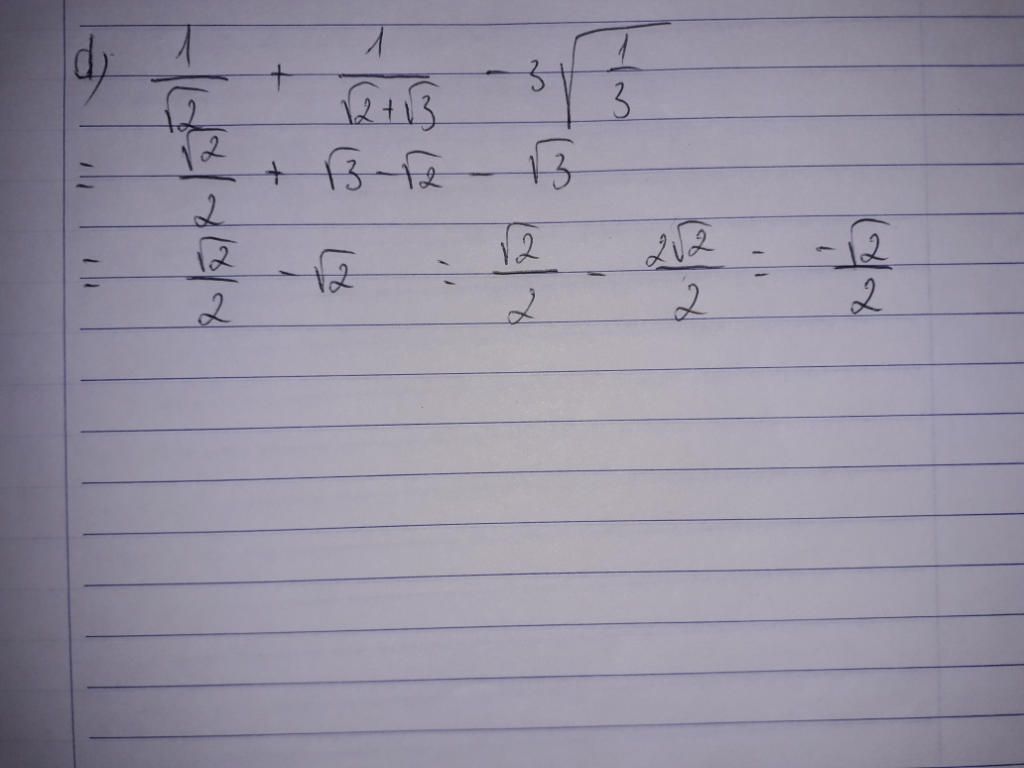 d) 1/√2 + 1/(√2+√3) - 3√(1/3)
= √2/2 + √3-√2 - √3
= √2/2 - √2 = √2/2 - 2√2/2 = -√2/2